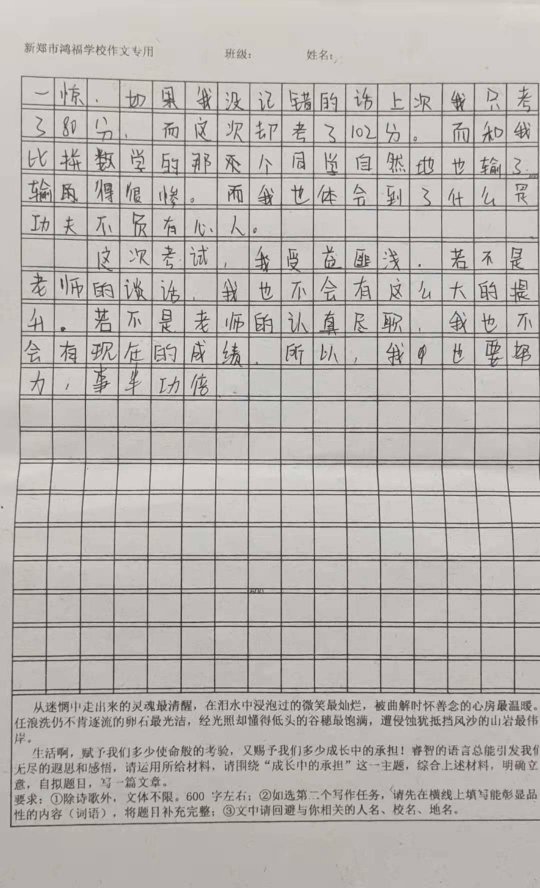 新郑市鸿福学校作文专用 班级： 姓名：
一惊，如果我没记错的话上次我只考
了80分，而这次却考了102分。而和我
比拼数学的那个同学自然地也输了
输得很惨。而我也体会到了什么是
功夫不负有心人。
这次考试，我受益匪浅．若不是
老师的谈话，我也不会有这么大的提
升。若不是老师的认真尽职，我也不
会有现在的成绩．所以，我也要努
力，事半功倍
600
从迷惘中走出来的灵魂最清醒，在泪水中浸泡过的微笑最灿烂，被曲解时怀善念的心房最温暖。
任浪洗仍不肯逐流的卵石最光洁，经光照却懂得低头的谷穗最饱满，遭侵蚀犹抵挡风沙的山岩最伟
岸。
生活啊，赋予我们多少使命般的考验，又赐予我们多少成长中的承担！睿智的语言总能引发我们
无尽的遐思和感悟，请运用所给材料，请围绕“成长中的承担”这一主题，综合上述材料，明确立
意，自拟题目，写一篇文章。
要求：①除诗歌外，文体不限。600 字左右；②如选第二个写作任务，请先在横线上填写能彰显品
性的内容（词语），将题目补充完整；③文中请回避与你相关的人名、校名、地名。